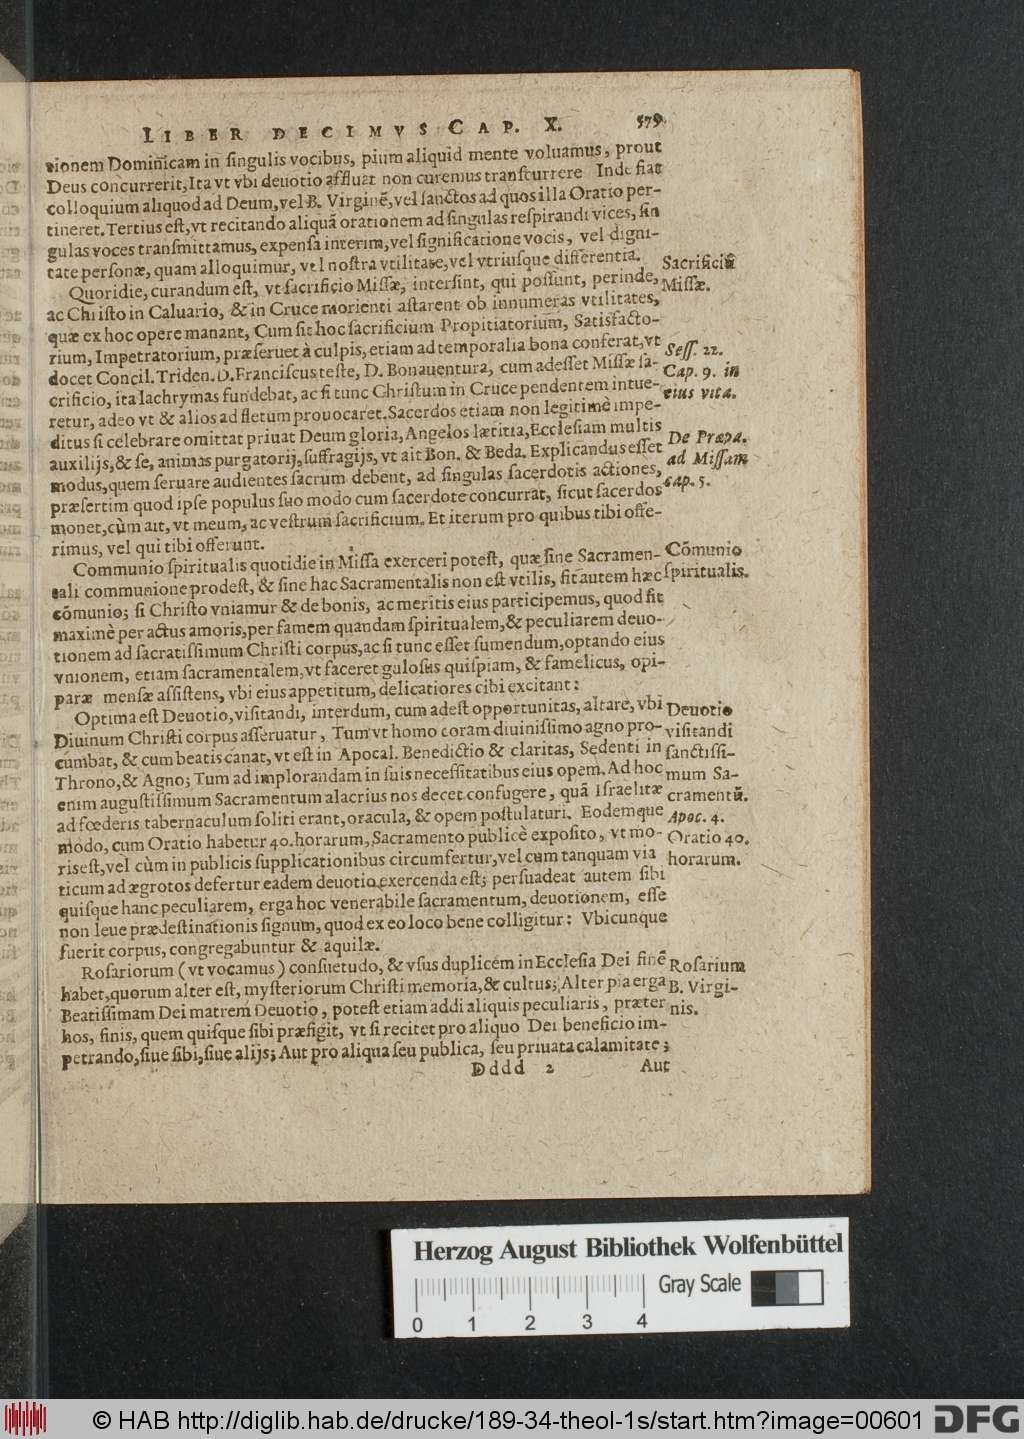 LIBER DECIMVS CAP. X. 579.
tionem Dominicam in ſingulis vocibus, pium aliquid mente voluamus, prout
Deus concurrerit, Ita vt vbi deuotio affluat non curemus tranſcurrere Inde fiat
colloquium aliquod ad Deum, vel B. Virginē, vel ſanctos ad quos illa Oratio per-
tineret. Tertius eſt, vt recitando aliquā orationem ad ſingulas reſpirandi vices, ſin
gulas voces tranſmittamus, expenſa interim, vel ſignificatione vocis, vel digni-
tate perſonæ, quam alloquimur, vel noſtra vtilitate, vel vtriuſque differentia.
Quotidie, curandum eſt, vt ſacrificio Miſſæ, interſint, qui poſſunt, perinde,
ac Chriſto in Caluario, & in Cruce morienti aſtarent ob innumeras vtilitates,
quæ ex hoc opere manant, Cum ſit hoc ſacrificium Propitiatorium, Satisfacto-
rium, Impetratorium, præſeruet à culpis, etiam ad temporalia bona conferat, vt
docet Concil. Triden. D. Franciſcus teſte, D. Bonauentura, cum adeſſet Miſſæ ſa-
crificio, ita lachrymas fundebat, ac ſi tunc Chriſtum in Cruce pendentem intue-
retur, adeo vt & alios ad fletum prouocaret. Sacerdos etiam non legitimè impe-
ditus ſi celebrare omittat priuat Deum gloria, Angelos lætitia, Eccleſiam multis
auxilijs, & ſe, animas purgatorij, ſuffragijs, vt ait Bon. & Beda. Explicandus eſſet
modus, quem ſeruare audientes ſacrum debent, ad ſingulas ſacerdotis actiones,
præſertim quod ipſe populus ſuo modo cum ſacerdote concurrat, ſicut ſacerdos
monet, cùm ait, vt meum, ac veſtrum ſacrificium. Et iterum pro quibus tibi offe-
rimus, vel qui tibi offerunt.
Sacrificiū
Miſſæ.
Seſſ. 22.
Cap. 9. in
eius vita.
De Præpa.
ad Miſſam
cap. 5.
Communio ſpiritualis quotidie in Miſſa exerceri poteſt, quæ ſine Sacramen-
tali communione prodeſt, & ſine hac Sacramentalis non eſt vtilis, fit autem hæc
cōmunio; ſi Chriſto vniamur & de bonis, ac meritis eius participemus, quod fit
maximè per actus amoris, per famem quandam ſpiritualem, & peculiarem deuo-
tionem ad ſacratiſſimum Chriſti corpus, ac ſi tunc eſſet ſumendum, optando eius
vnionem, etiam ſacramentalem, vt faceret guloſus quiſpiam, & famelicus, opi-
paræ menſæ aſſiſtens, vbi eius appetitum, delicatiores cibi excitant:
Cōmunio
ſpiritualis.
Optima eſt Deuotio, viſitandi, interdum, cum adeſt opportunitas, altare, vbi
Diuinum Chriſti corpus aſſeruatur, Tum vt homo coram diuiniſſimo agno pro-
cumbat, & cum beatis canat, vt eſt in Apocal. Benedictio & claritas, Sedenti in
Throno, & Agno; Tum ad implorandam in ſuis neceſſitatibus eius opem. Ad hoc
enim auguſtiſſimum Sacramentum alacrius nos decet confugere, quā Iſraelitæ
ad fœderis tabernaculum ſoliti erant, oracula, & opem poſtulaturi. Eodemque
modo, cum Oratio habetur 40. horarum, Sacramento publicè expoſito, vt mo-
ris eſt, vel cùm in publicis ſupplicationibus circumfertur, vel cum tanquam via
ticum ad ægrotos defertur eadem deuotio exercenda eſt; perſuadeat autem ſibi
quiſque hanc peculiarem, erga hoc venerabile ſacramentum, deuotionem, eſſe
non leue prædeſtinationis ſignum, quod ex eo loco bene colligitur: Vbicunque
fuerit corpus, congregabuntur & aquilæ.
Deuotio
viſitandi
ſanctiſſi-
mum Sa-
cramentū.
Apoc. 4.
Oratio 40.
horarum.
Roſariorum (vt vocamus) conſuetudo, & vſus duplicem in Eccleſia Dei finē
habet, quorum alter eſt, myſteriorum Chriſti memoria, & cultus; Alter pia erga
Beatiſſimam Dei matrem Deuotio, poteſt etiam addi aliquis peculiaris, præter
hos, finis, quem quiſque ſibi præfigit, vt ſi recitet pro aliquo Dei beneficio im-
petrando, ſiue ſibi, ſiue alijs; Aut pro aliqua ſeu publica, ſeu priuata calamitate;
Roſarium
B. Virgi-
nis.
Dddd 2 Aut
Herzog August Bibliothek Wolfenbüttel
Gray Scale
0 1 2 3 4
© HAB http://diglib.hab.de/drucke/189-34-theol-1s/start.htm?image=00601 DFG